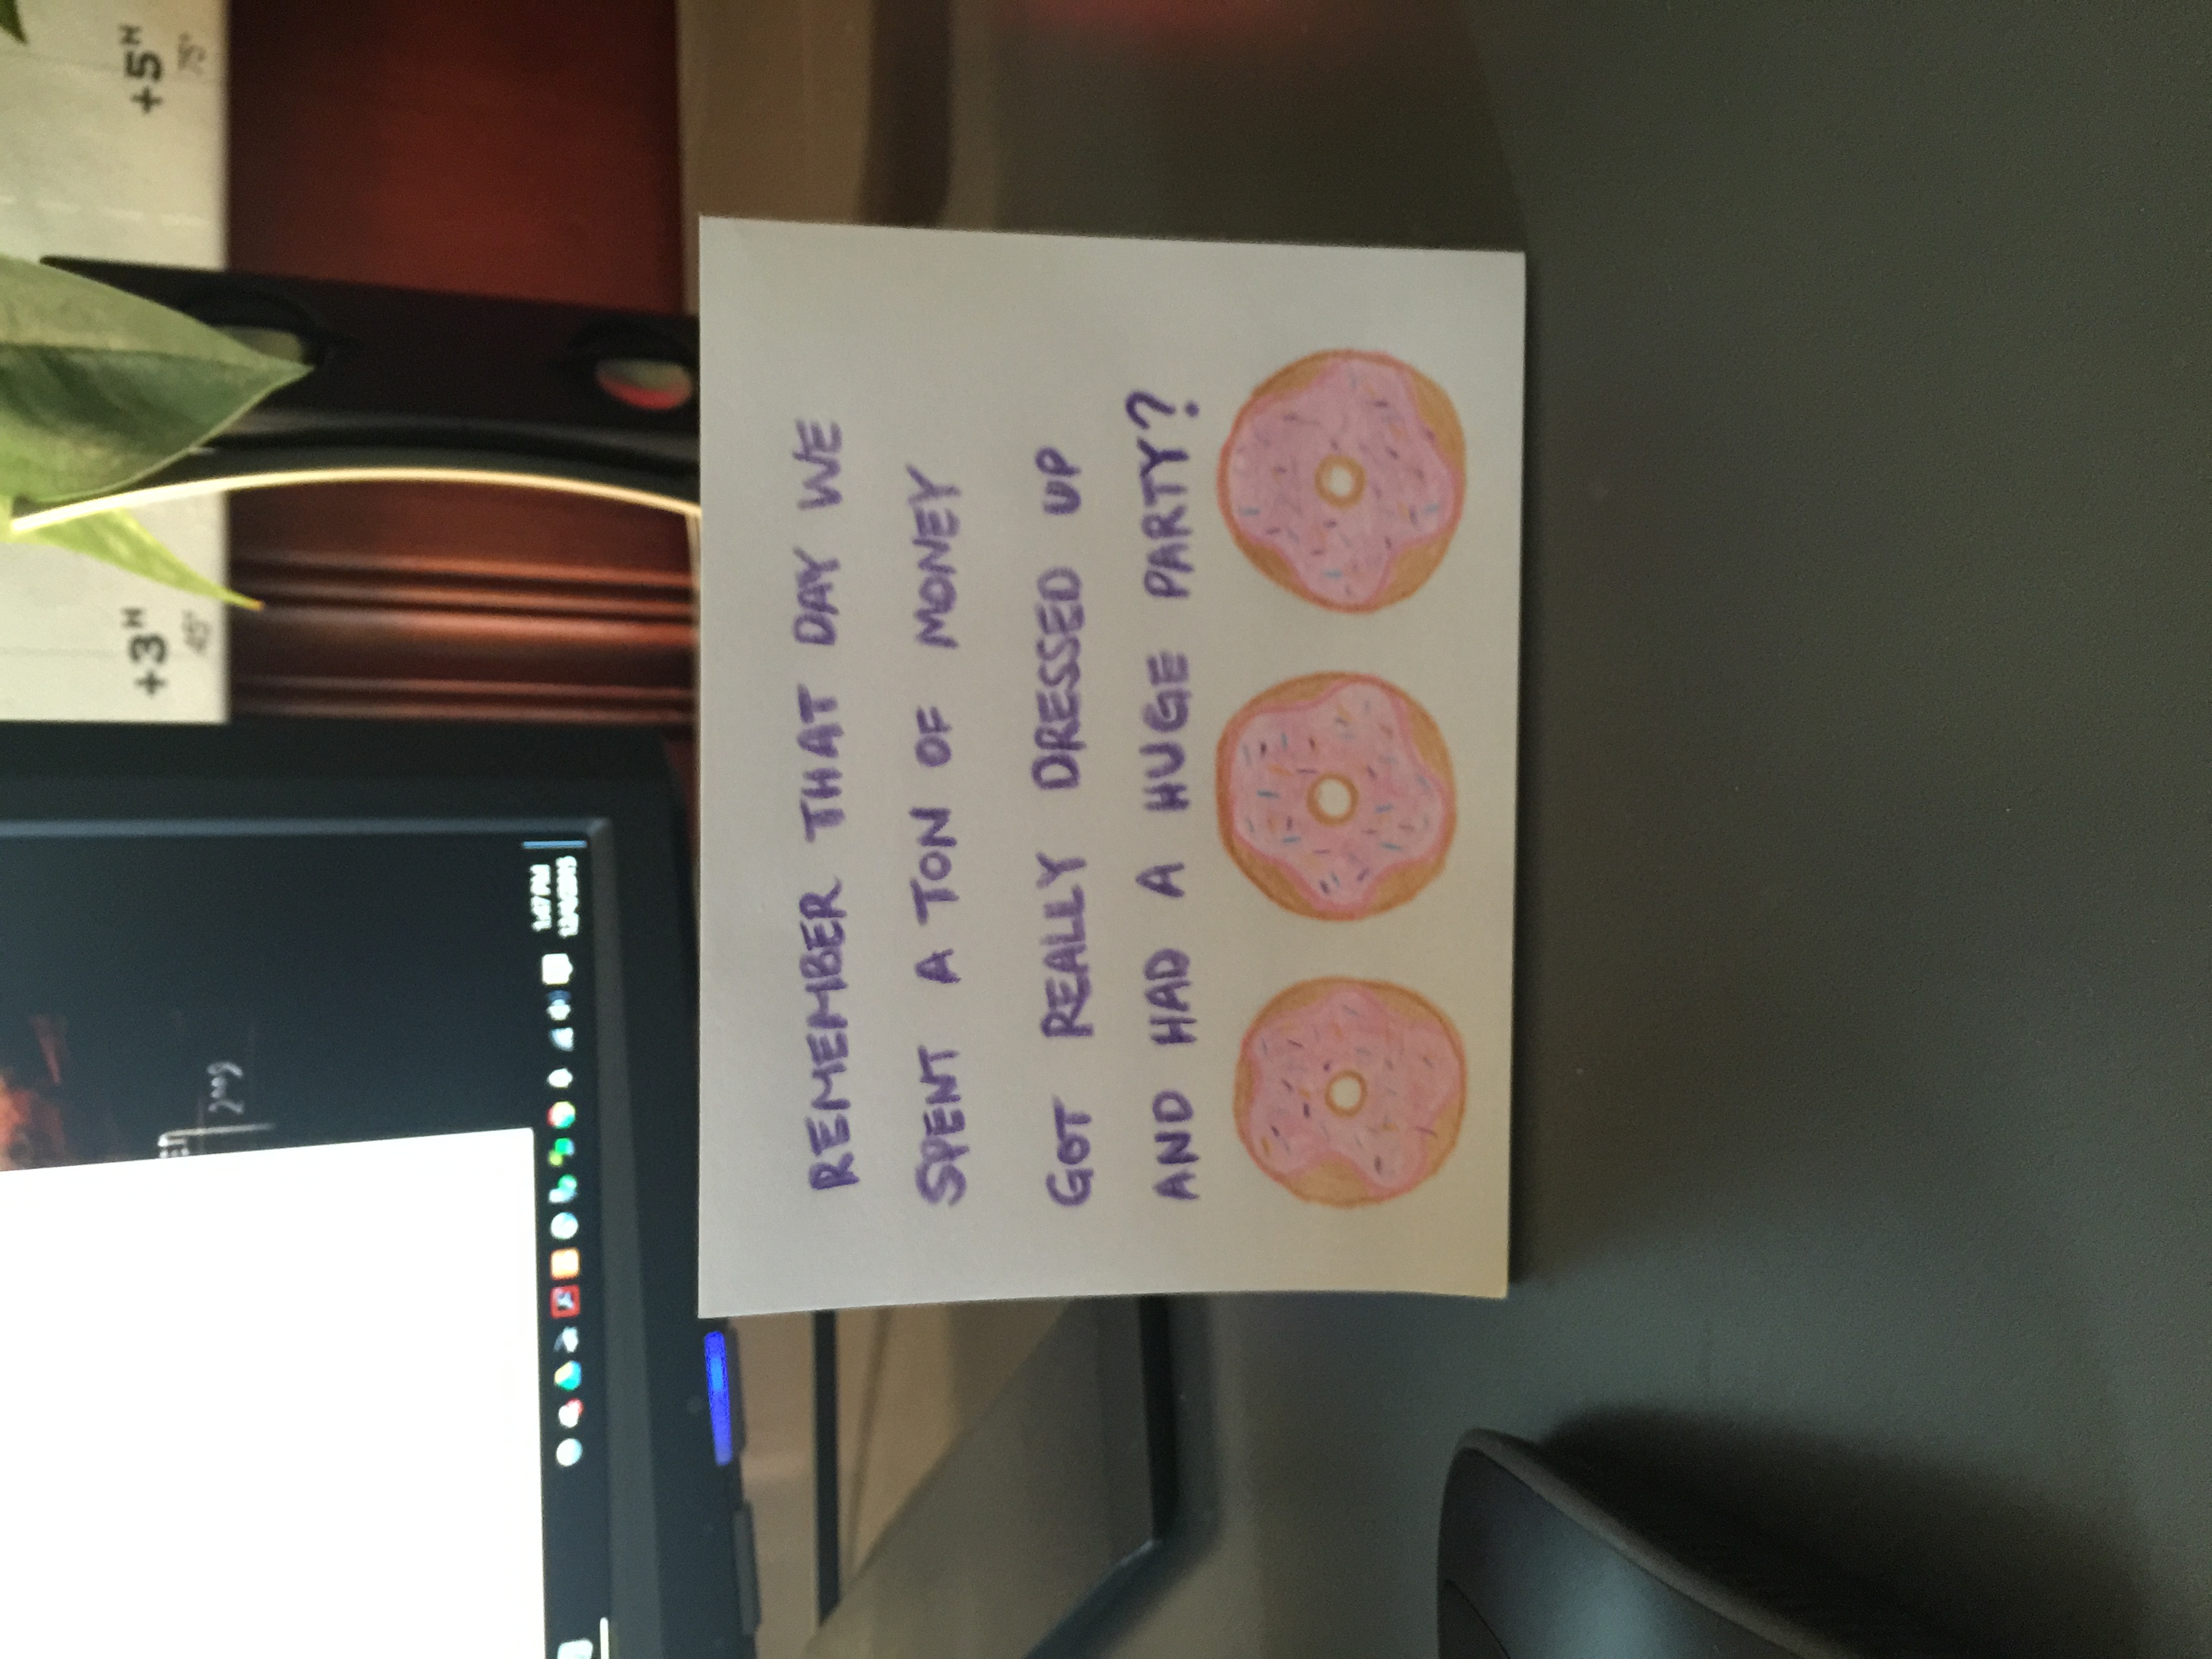 2009
+3ᴴ
45°
+5ᴴ
75°
1:47 PM
REMEMBER THAT DAY WE
SPENT A TON OF MONEY
GOT REALLY DRESSED UP
AND HAD A HUGE PARTY?